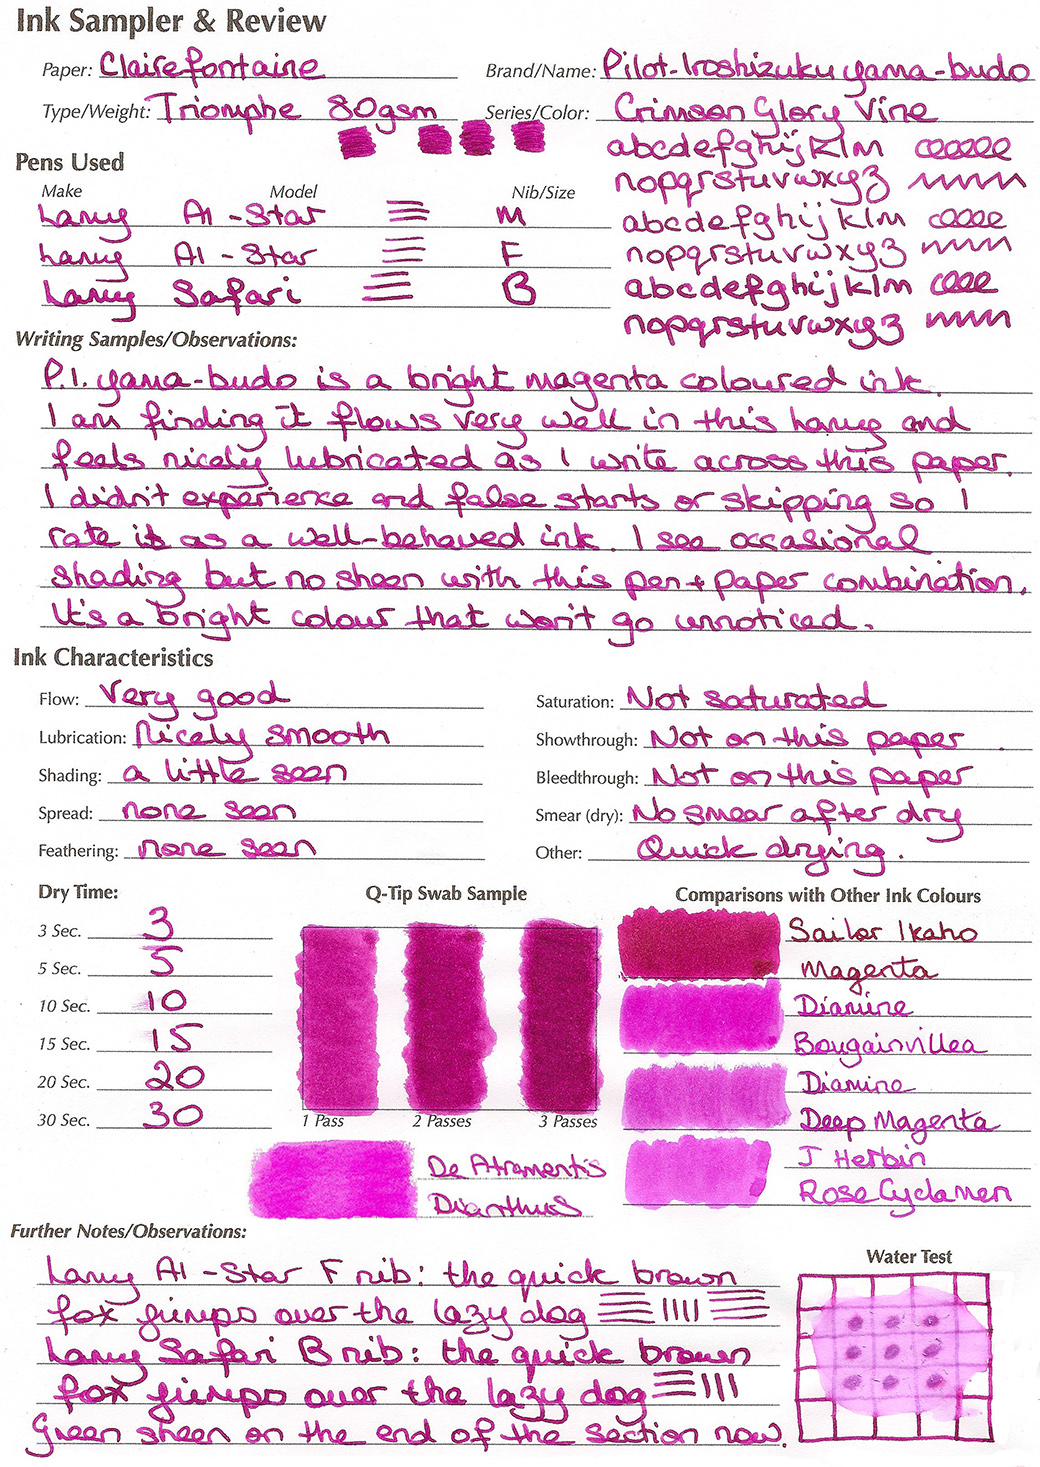 Ink Sampler & Review
Paper: Clairefontaine Brand/Name: Pilot-Iroshizuku yama-budo
Type/Weight: Triomphe 80gsm Series/Color: Crimson Glory Vine
abcdefghijklm
Pens Used
nopqrstuvwxyz
Make Model Nib/Size
Lamy Al-Star M
abcdefghijklm
Lamy Al-Star F
nopqrstuvwxyz
Lamy Safari B
abcdefghijklm
nopqrstuvwxyz
Writing Samples/Observations:
P.I. yama-budo is a bright magenta coloured ink.
I am finding it flows very well in this Lamy and
feels nicely lubricated as I write across this paper.
I didn't experience and false starts or skipping so I
rate it as a well-behaved ink. I see occasional
shading but no sheen with this pen + paper combination.
It's a bright colour that won't go unnoticed.
Ink Characteristics
Flow: Very good Saturation: Not saturated
Lubrication: Nicely smooth Showthrough: Not on this paper
Shading: a little seen Bleedthrough: Not on this paper
Spread: none seen Smear (dry): No smear after dry
Feathering: none seen Other: Quick drying.
Dry Time: Q-Tip Swab Sample Comparisons with Other Ink Colours
3 Sec. 3 Sailor Ikaho
5 Sec. 5 Magenta
10 Sec. 10 Diamine
15 Sec. 15 Bougainvillea
20 Sec. 20 Diamine
30 Sec. 30 1 Pass 2 Passes 3 Passes Deep Magenta
De Atramentis J Herbin
Dianthus Rose Cyclamen
Further Notes/Observations:
Water Test
Lamy Al-Star F nib: the quick brown
fox jumps over the lazy dog
Lamy Safari B nib: the quick brown
fox jumps over the lazy dog
Green sheen on the end of the section now.